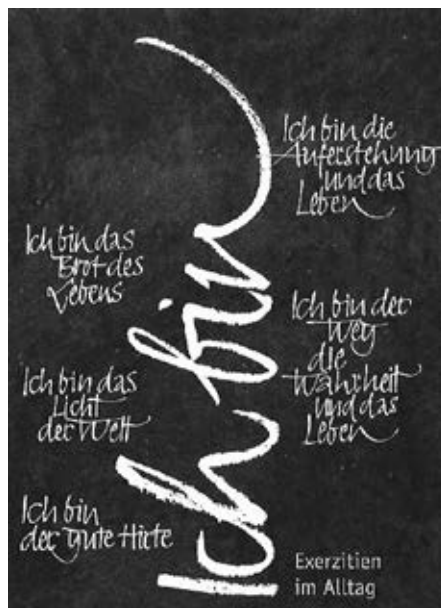 Ich bin
Ich bin die
Auferstehung
und das
Leben
Ich bin das
Brot des
Lebens
Ich bin der
Weg
die
Wahrheit
und das
Leben
Ich bin das
Licht
der Welt
Ich bin
der gute Hirte
Exerzitien
im Alltag